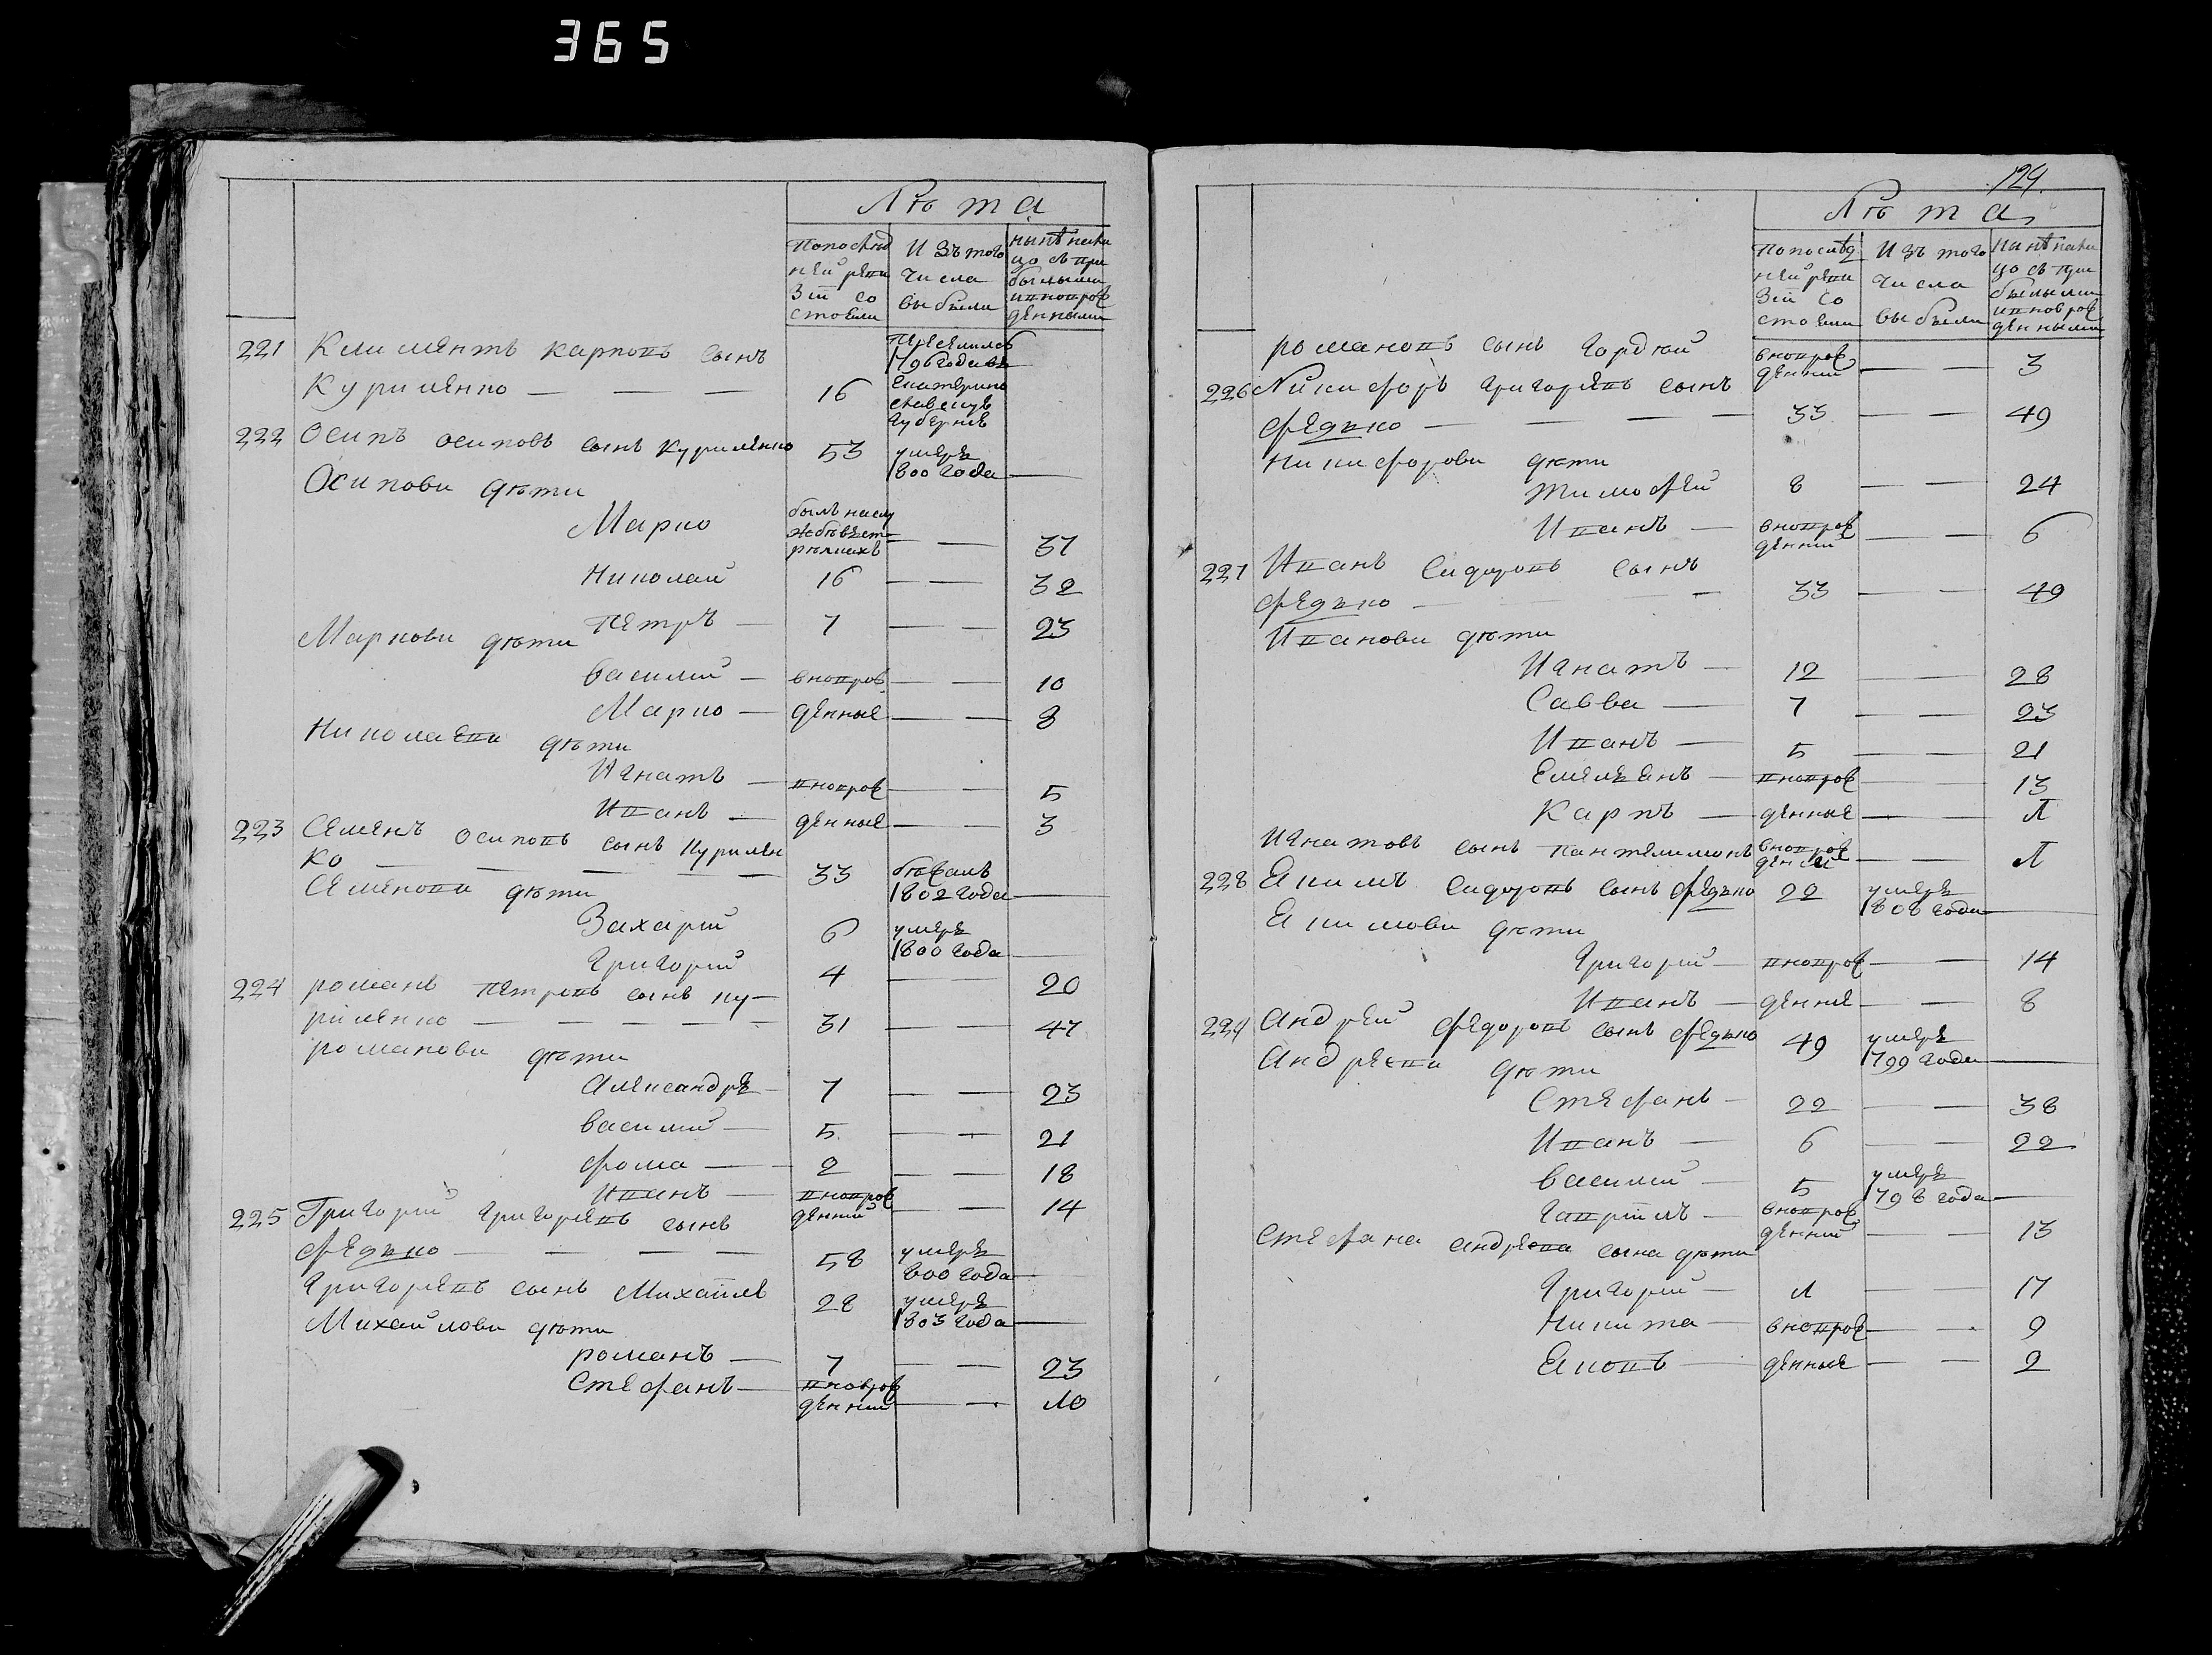 365
Лѣта
Попослѣд ней реви зіи со стояли
Изъ того числа выбыли
нынѣ нали цо съ при былыми и вновро жденными
221 Климентъ Карповъ сынъ
Куриленко — — — 16 переселился 1796 года въ Екатерино славскую губернію
222 Осипъ Осиповъ сынъ Куриленко 53 умеръ 1800 года —
Осипови дѣти
Марко былъ — — 37
Николай 16 — — 32
Петръ — 7 — — 23
Маркови дѣти
Василий — вновро — — 10
Марко — жденные — — 8
Николаеви дѣти
Игнатъ — вновро — — 5
Иванъ — жденные — 3
223 Семенъ Осиповъ сынъ Курилен
ко — — — — 33 бѣжалъ 1802 года —
Семенови дѣти
Захарій 6 умеръ 1800 года —
Григорій 4 — 20
224 Романъ Петровъ сынъ Ку-
риленко — — — — — 31 — — 47
Романови дѣти
Александръ — 7 — — 23
Василий — 5 — — 21
Фома — 2 — — 18
Иванъ — вновро жденний — — 14
225 Григорій Григорьевъ сынъ
Федько — — — — 58 умеръ 800 года —
Григорьевъ сынъ Михайлъ 28 умеръ 1803 года —
Михайлови дѣти
Романъ — 7 — — 23
Стефанъ — вновро жденний — — 10
129.
Лѣта
Попослѣд ней реви зіи со стояли
Изъ того числа выбыли
Нынѣ нали цо съ при былыми и вновро жденными
Романовъ сынъ Гордѣй вновро жденний — — 3
226 Никифоръ Григорьевъ сынъ
Федько — — — 33 — — 49
Никифорови дѣти
Тимофей 8 — — 24
Иванъ — вновро жденний — — 6
227 Иванъ Сидоровъ сынъ
Федько — — — 33 — — 49
Иванови дѣти
Игнатъ — 12 — — 28
Савва — 7 — — 23
Иванъ — 5 — — 21
Емельянъ — вновро — 13
Карпъ — жденные — — Л
Игнатовъ сынъ Пантелимонъ вновро жденній — — Л
228 Екимъ Сидоровъ сынъ Федько 22 умеръ 1808 года —
Екимови дѣти
Григорій — вновро — — 14
Иванъ — жденные — — 8
229 Андрей Федоровъ сынъ Федько 49 умеръ 1799 года —
Андреви дѣти
Стефанъ — 22 — — 38
Иванъ — 6 — — 22
Василий — 5 умеръ 1798 года —
Гаврілъ — вновро жденний — — 13
Стефана Андрева сына дѣти
Григорій — Л — — 17
Никита — вновро — — 9
Яковъ — жденные — — 2